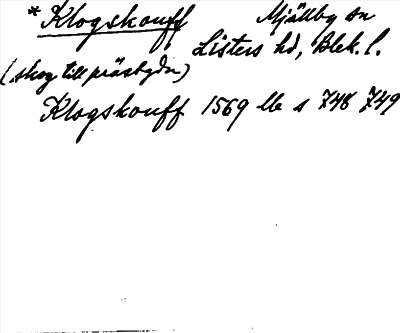 * Klogskouff Mjällby sn
Listers hd, Blek. l.
(skog till präsbydn)
Klogskouff 1569 lb s 748 749